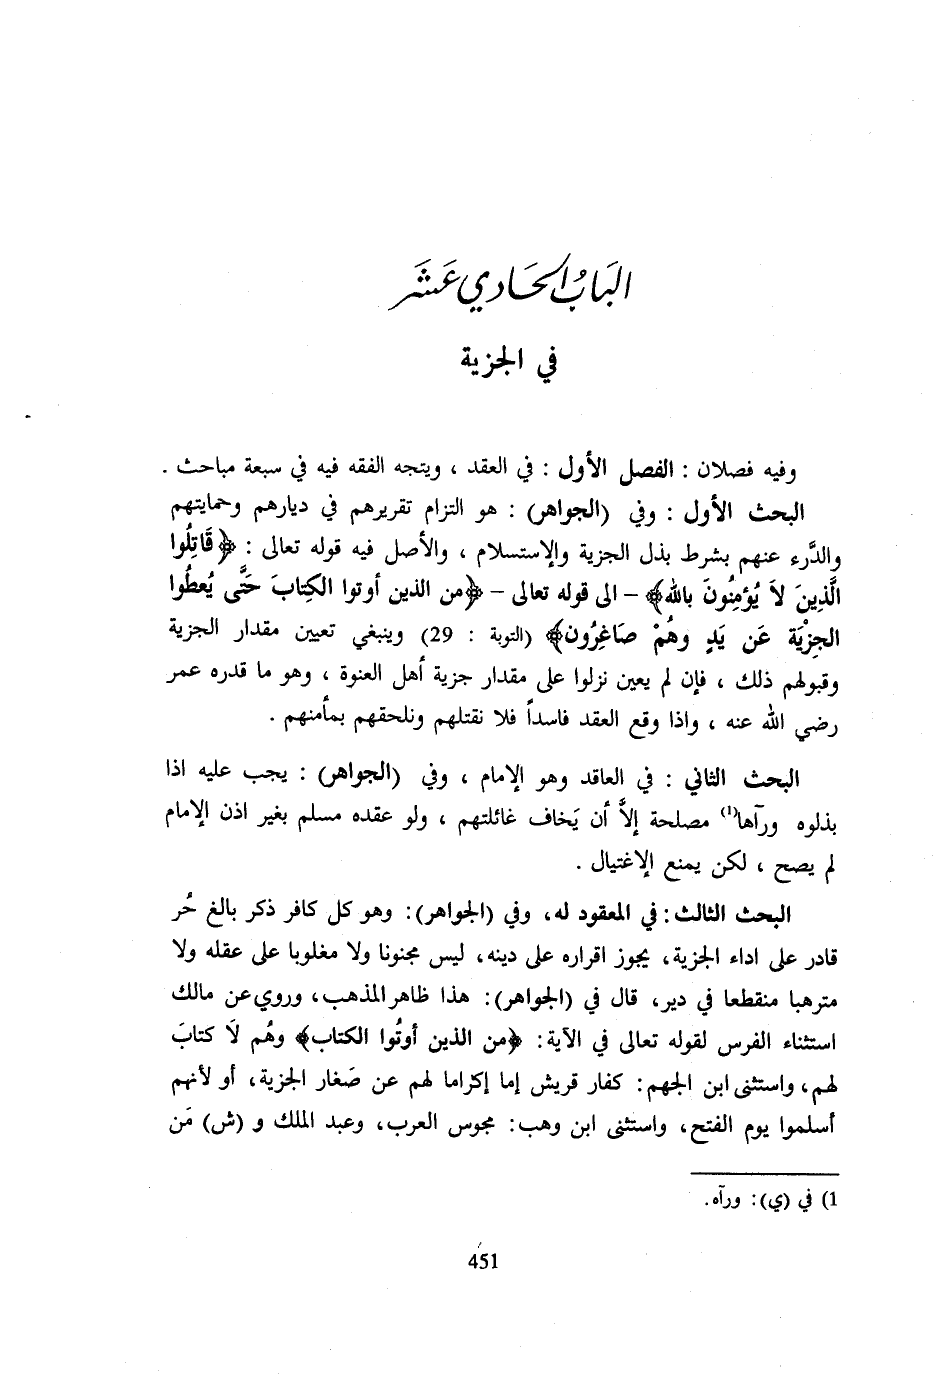 البَابُ الحَادِي عَشَر
في الجزية
وفيه فصلان : الفصل الأول : في العقد ، ويتجه الفقه فيه في سبعة مباحث .
البحث الأول : وفي (الجواهر) : هو التزام تقريرهم في ديارهم وحمايتهم
والدَّرء عنهم بشرط بذل الجزية والإستسلام ، والأصل فيه قوله تعالى : ﴿قَاتِلُوا
الَّذِينَ لاَ يُؤمِنُونَ بالله﴾ – الى قوله تعالى – ﴿من الذين أوتوا الكِتابَ حَتَّى يُعطُوا
الجِزْيَة عَن يَدٍ وهُمْ صَاغِرُون﴾ (التوبة : 29) وينبغي تعيين مقدار الجزية
وقبولهم ذلك ، فإن لم يعين نزلوا على مقدار جزية أهل العنوة ، وهو ما قدره عمر
رضي الله عنه ، واذا وقع العقد فاسداً فلا نقتلهم ونلحقهم بمأمنهم .
البحث الثاني : في العاقد وهو الإمام ، وفي (الجواهر) : يجب عليه اذا
بذلوه ورآها(1) مصلحة إلاَّ أن يَخاف غائلتهم ، ولو عقده مسلم بغير اذن الإمام
لم يصح ، لكن يمنع الإغتيال .
البحث الثالث: في المعقود له، وفي (الجواهر): وهو كل كافر ذكر بالغ حُر
قادر على اداء الجزية، يجوز اقراره على دينه، ليس مجنونا ولا مغلوبا على عقله ولا
مترهبا منقطعا في دير، قال في (الجواهر): هذا ظاهر المذهب، وروي عن مالك
استثناء الفرس لقوله تعالى في الآية: ﴿من الذين أوتُوا الكتاب﴾ وهُم لاَ كتابَ
لهم، واستثنى ابن الجهم: كفار قريش إما إكراما لهم عن صَغار الجزية، أو لأنهم
أسلموا يوم الفتح، واستثنى ابن وهب: مجوس العرب، وعبد الملك و (ش) مَن
1) في (ي): ورآه.
451